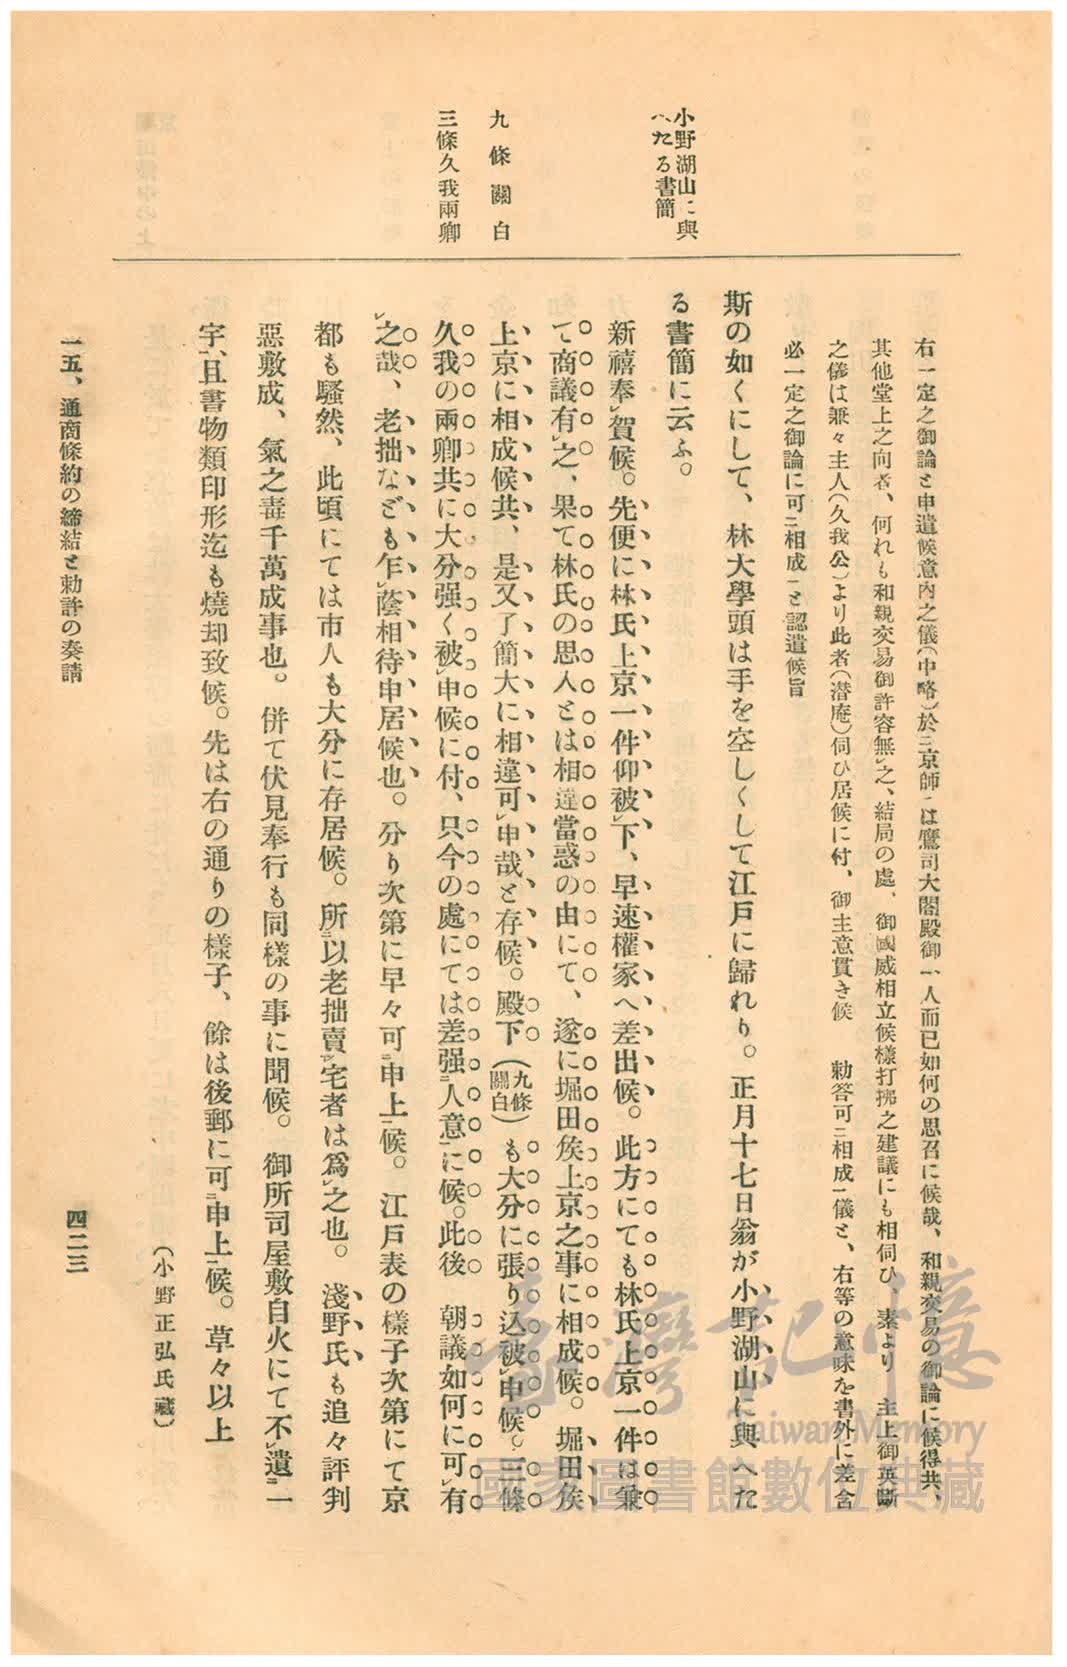 小野湖山に與
へたる書簡
九條關白
三條久我兩卿
右一定之御論と申遣候意內之儀(中略)於㆓京師㆒は鷹司大閤殿御一人而已如何の思召に候哉、和親交易の御論に候得共、
其他堂上之向者、何れも和親交易御許容無㆑之、結局の處、御國威相立候樣打拂之建議にも相伺ひ、素より 主上御英斷
之儀は兼々主人(久我公)より此者(潜庵)伺ひ居候に付、御主意貫き候 勅答可㆓相成㆒儀と、右等の意味を書外に差含
必一定之御論に可㆓相成㆒と認遣候旨
斯の如くにして、林大學頭は手を空しくして江戸に歸れり。正月十七日翁が小野湖山に與へた
る書簡に云ふ。
新禧奉㆑賀候。先便に林氏上京一件仰被㆑下、早速權家へ差出候。此方にても林氏上京一件は兼
て商議有㆑之、果て林氏の思人とは相違當惑の由にて、遂に堀田矦上京之事に相成候。堀田矦
上京に相成候共、是又了簡大に相違可㆑申哉と存候。殿下(九條關白)も大分に張り込被㆑申候。三條
久我の兩卿共に大分强く被㆑申候に付、只今の處にては差强㆓人意㆒に候。此後 朝議如何に可㆑有
㆑之哉、老拙なども乍㆑蔭相待申居候也。分り次第に早々可㆓申上㆒候。江戸表の樣子次第にて京
都も騷然、此頃にては市人も大分に存居候。所㆓以老拙賣㆑宅者は爲㆑之也。淺野氏も追々評判
惡敷成、氣之毒千萬成事也。併て伏見奉行も同樣の事に聞候。御所司屋敷自火にて不㆑遺㆓一
宇㆒、且書物類印形迄も燒却致候。先は右の通りの樣子、餘は後郵に可㆓申上㆒候。草々以上
(小野正弘氏藏)
一五、通商條約の締結と勅許の奏請
四二三
臺灣記憶
Taiwan Memory
國家圖書館數位典藏